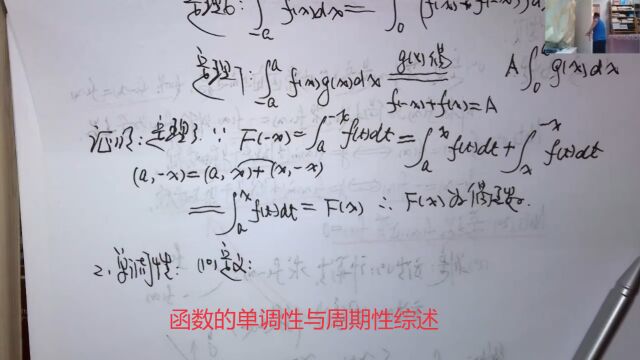 定理6: ∫_{-a}^{a} f(x)dx = ∫_0 (f(x)+f(-x))dx,
定理7: ∫_{-a}^{a} f(x)g(x)dx \xlongequal[f(-x)+f(x)=A]{g(x)偶} A∫_0^a g(x)dx
证明: 定理3 ∵ F(-x)=∫_a^{-x} f(t)dt = ∫_a^x f(t)dt + ∫_x^{-x} f(t)dt
(a,-x)=(a,x)+(x,-x)
= ∫_a^x f(t)dt = F(x) ∴ F(x)为偶函数。
2. 单调性: (1) 定义:
函数的单调性与周期性综述